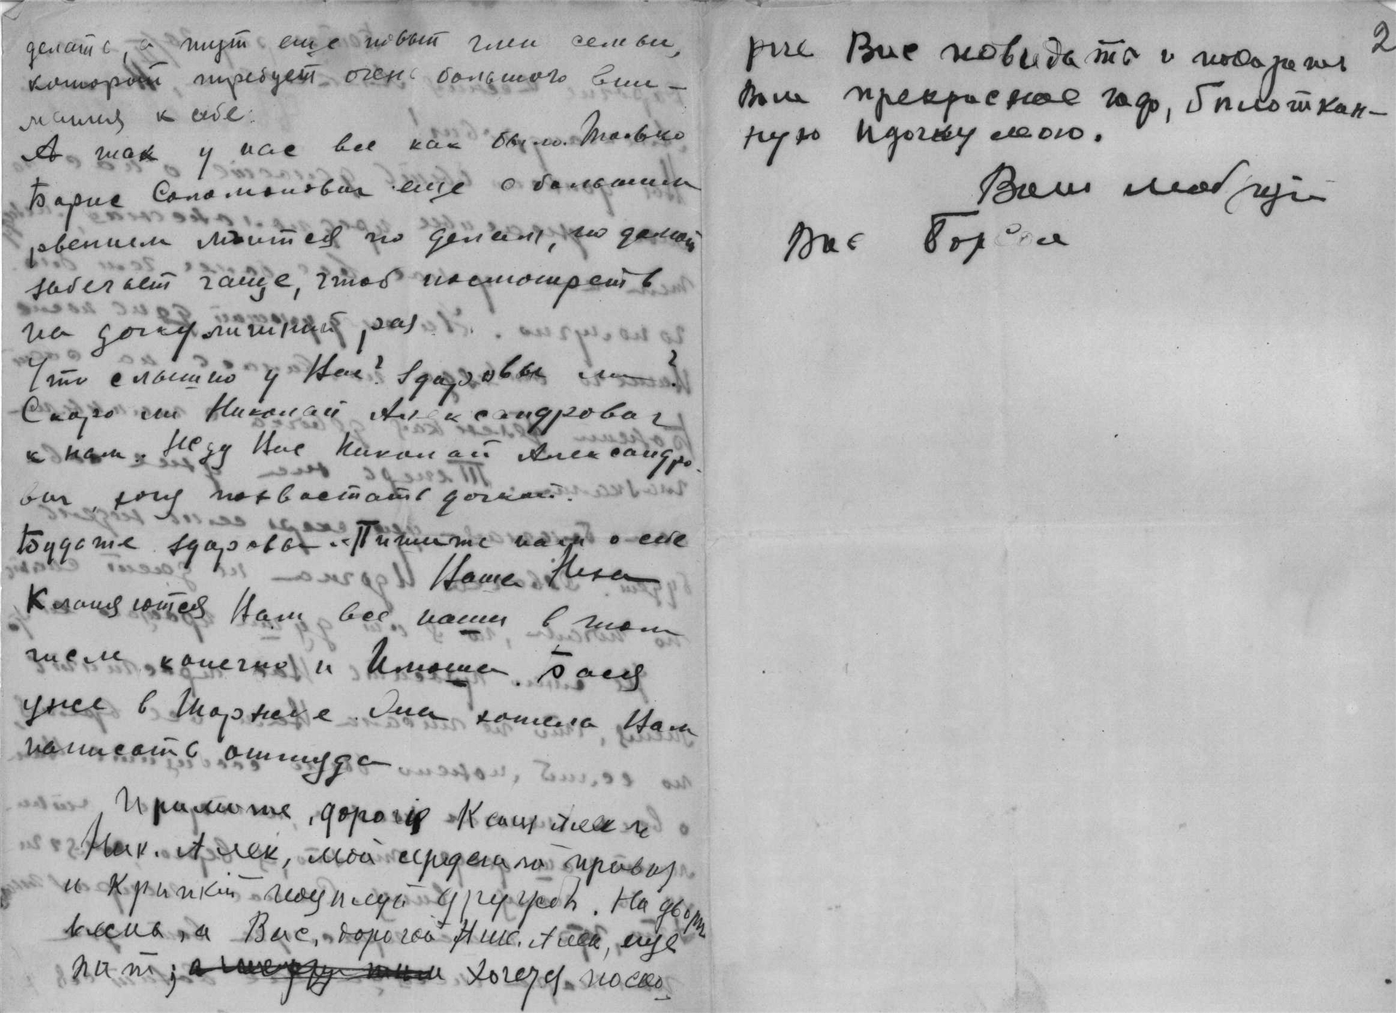 делать, а тут еще новый член семьи,
который требует очень большого вни-
мания к себе.
А так у нас все как было. Только
Борис Соломонович еще с большим
рвением мчится по делам, но домой
забегает чаще, чтоб посмотреть
на дочку лишний раз.
Что слышно у Вас? Здоровы ли?
Скоро ли Николай Александрович
к нам. Жду Вас Николай Александро-
вич, хочу похвастать дочкой.
Будьте здоровы. Пишите нам о себе
Ваша
Кланяются Вам все наши в том
числе конечно и Илюша. Бася
уже в Торжке. Она хотела Вам
написать оттуда
Примите, дорогие Кат Алек и
Ник. Алек, мой сердечный привет
и крепкий поцелуй. На дворе
весна, а Вас, дорогой Ник. Алек, еще
нет; хочется поско
2
рее Вас повидать и показать
Вам прекрасное
ную Идочку мою.
Ваш любящий
Вас Борис